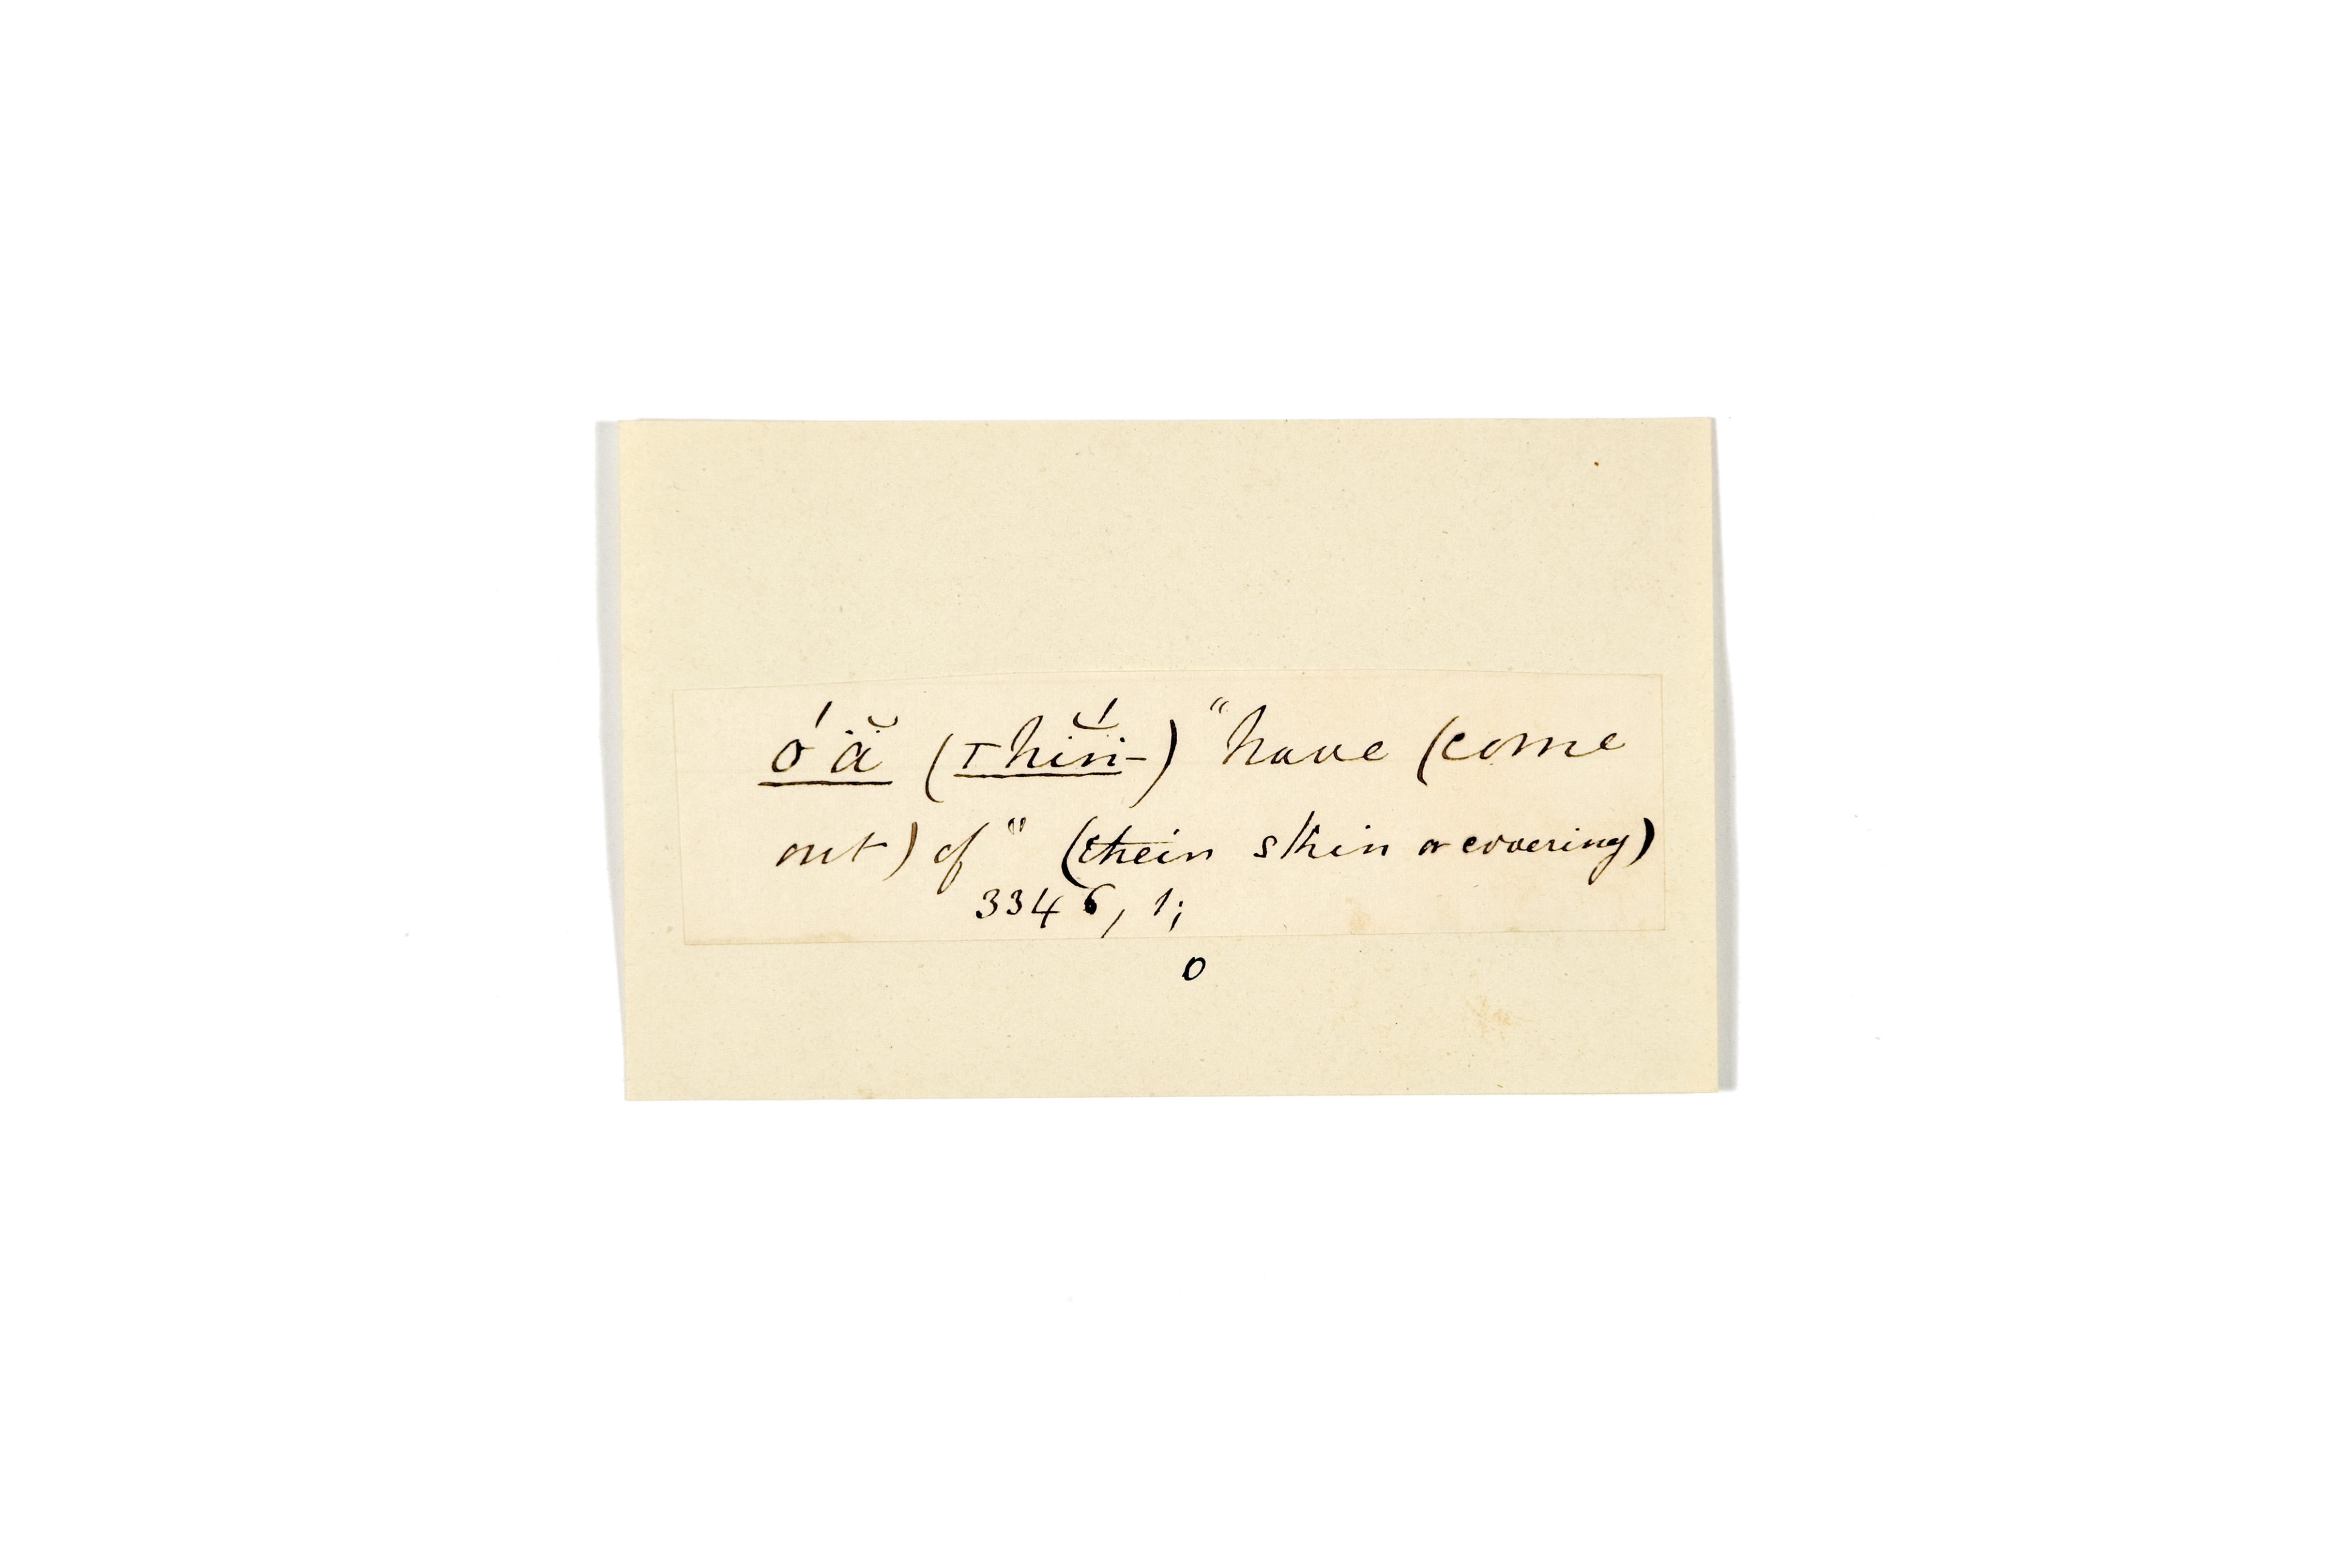 ó'ä̆ (Thin̆́-) "have (come
out) of" (their skin or covering)
3346, 1;
o